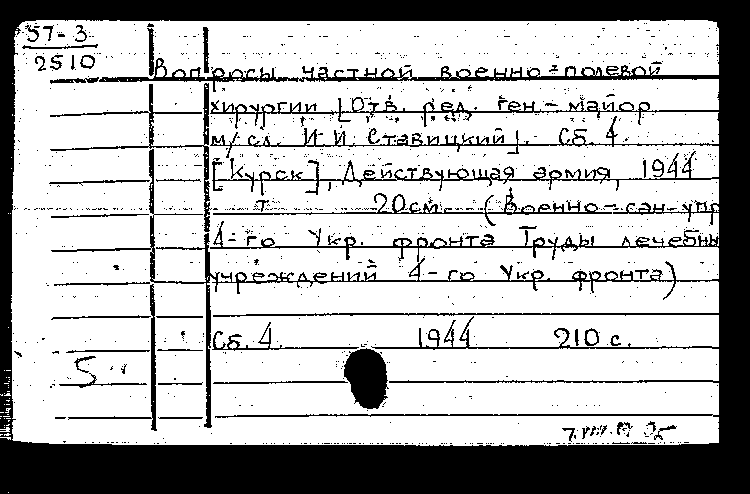 57-3
2510
Вопросы частной военно-полевой
хирургии [Отв. ред. ген-майор
м/сл. И.И. Ставицкий]. Сб. 4.
[Курск], Действующая армия, 1944
т 20см. (Военно-сан-упр
4-го Укр. фронта Труды лечебны
учреждений 4-го Укр. фронта)
Сб. 4. 1944 210 с.
5